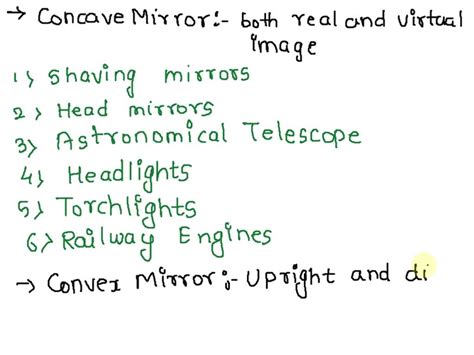 → Concave Mirror:- both real and virtual
image
1) Shaving mirrors
2) Head mirrors
3) Astronomical Telescope
4) Headlights
5) Torchlights
6) Railway Engines
→ Convex Mirror:- Upright and di